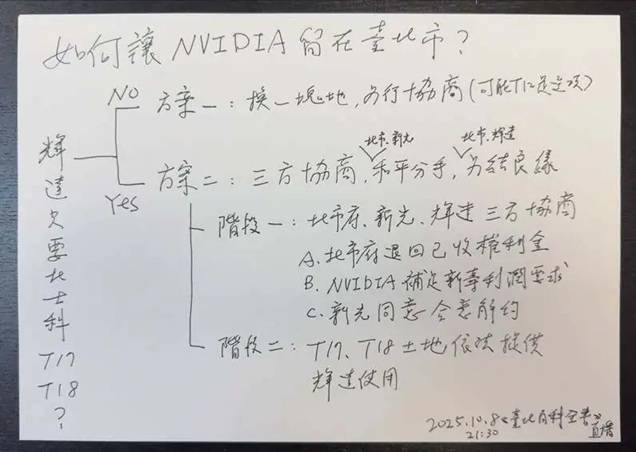 如何讓NVIDIA留在臺北市?
輝達只要北士科T17 T18?
NO 方案一:換一塊地,另行協商(可能T12是選項)
Yes 方案二:三方協商,和平分手,另結良緣
北市、新光
北市、輝達
階段一:北市府、新光、輝達三方協商
A.北市府退回已收權利金
B.NVIDIA補足新壽利潤要求
C.新光同意合意解約
階段二:T17、T18土地依法提供
輝達使用
2025.10.8《臺北百科全書》直播
21:30